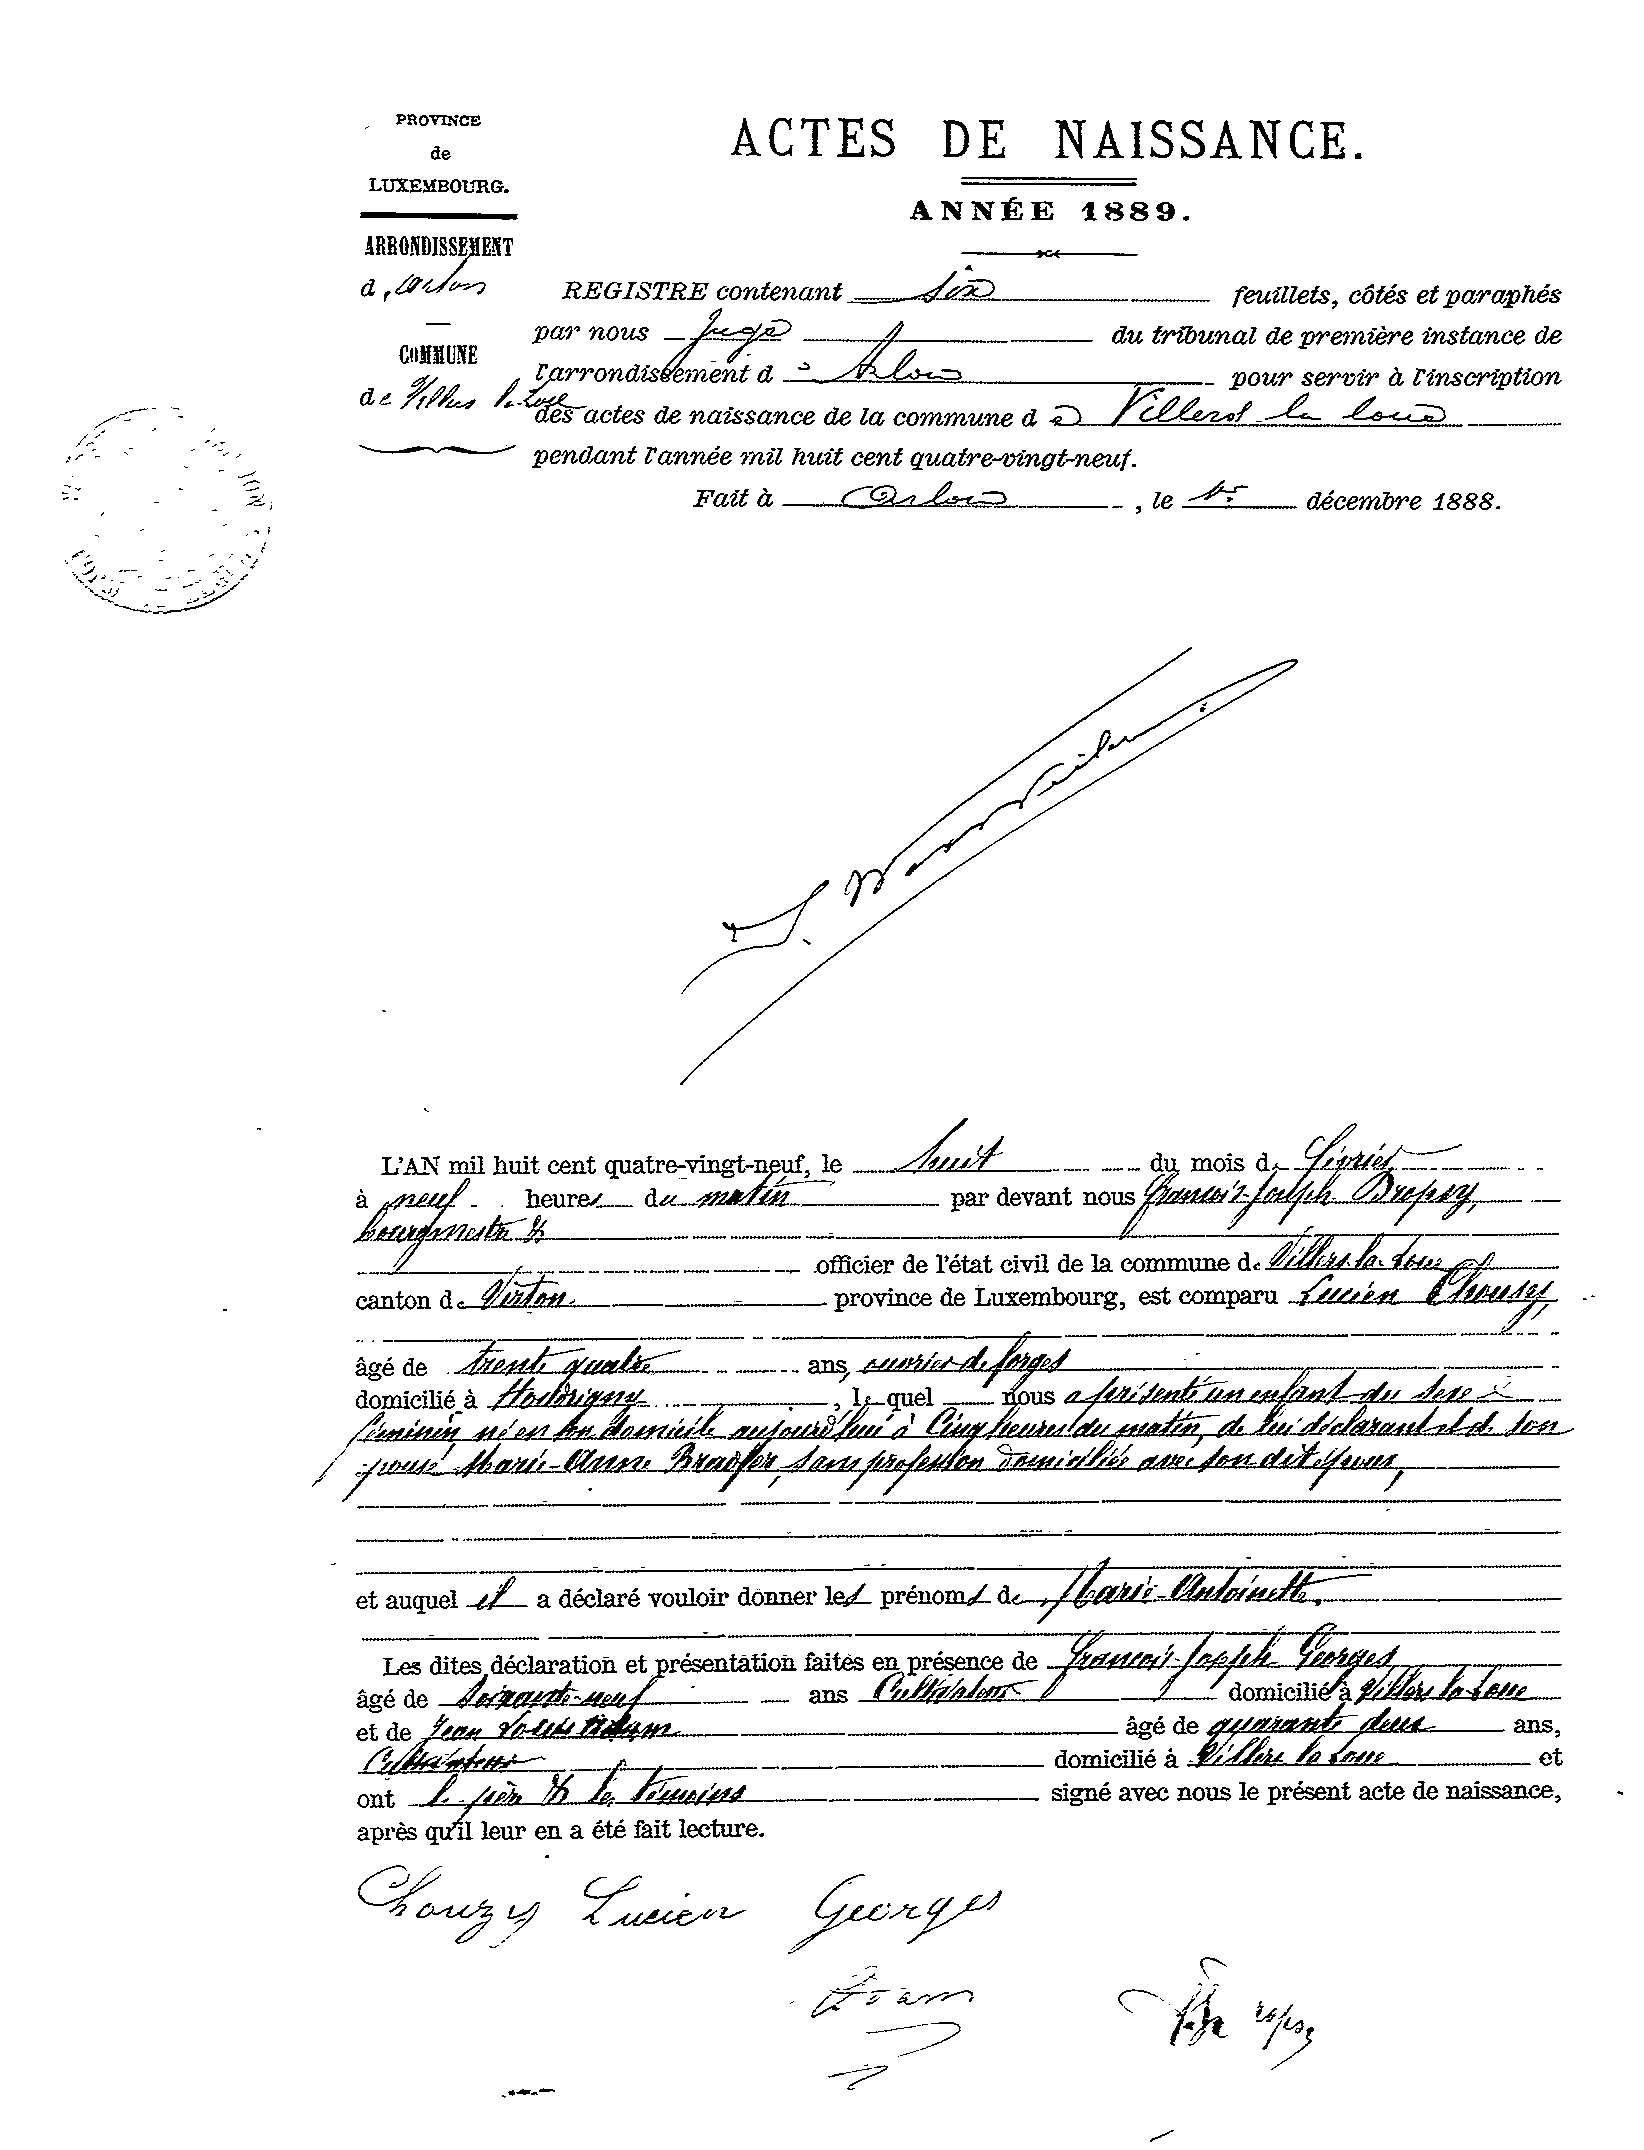 PROVINCE
de
LUXEMBOURG.
ARRONDISSEMENT
d'Arlon
COMMUNE
de Villers la Loue
ACTES DE NAISSANCE.
ANNÉE 1889.
REGISTRE contenant six feuillets, côtés et paraphés
par nous Juge du tribunal de première instance de
l'arrondissement d Arlon pour servir à l'inscription
des actes de naissance de la commune de Villers la loue
pendant l'année mil huit cent quatre-vingt-neuf.
Fait à Arlon, le décembre 1888.
L'AN mil huit cent quatre-vingt-neuf, le huit du mois de Février
à neuf heures du matin par devant nous François-Joseph Dropsy,
bourgmestre &
officier de l'état civil de la commune de Villers-la-Loue
canton de Virton province de Luxembourg, est comparu Lucien Chouzy,
âgé de trente quatre ans, ouvrier de forges
domicilié à Houdrigny, lequel nous a présenté un enfant du sexe
féminin, né en son domicile aujourd'hui à Cinq heures du matin, de lui déclarant et de son
épouse Marie-Anne Bradfer, sans profession domiciliée avec son dit époux,
et auquel il a déclaré vouloir donner les prénoms de Marie-Antoinette.
Les dites déclaration et présentation faites en présence de François-Joseph Georges
âgé de soixante-neuf ans Cultivateur domicilié à Villers la Loue
et de Jean Louis Adam âgé de quarante deux ans,
Cultivateur domicilié à Villers la Loue et
ont le père & les témoins signé avec nous le présent acte de naissance,
après qu'il leur en a été fait lecture.
Chouzy Lucien Georges
Adam